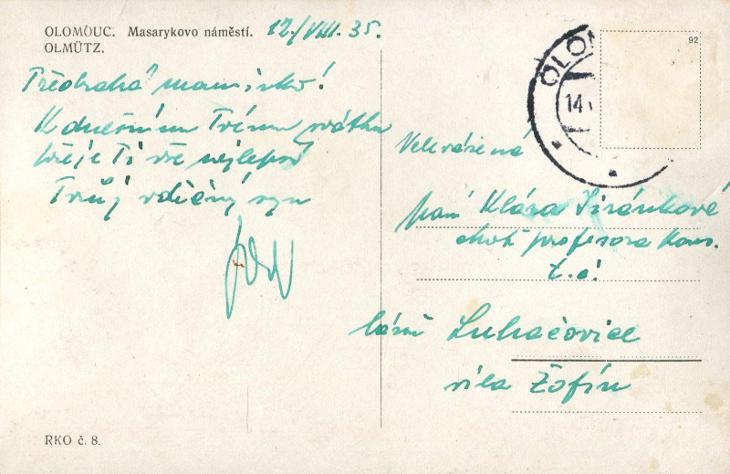 OLOMOUC. Masarykovo náměstí. 12./VIII. 35.
OLMÜTZ.
Předrahá maminko!
K dnešním Tvému svátku
přeje Ti vše nejlepší
Tvůj vděčný syn
OLOM
14
92
Velevážená
paní Klára Jiránková
choť profesora kons.
t. č.
lázně Luhačovice
vila Žofín
RKO č. 8.